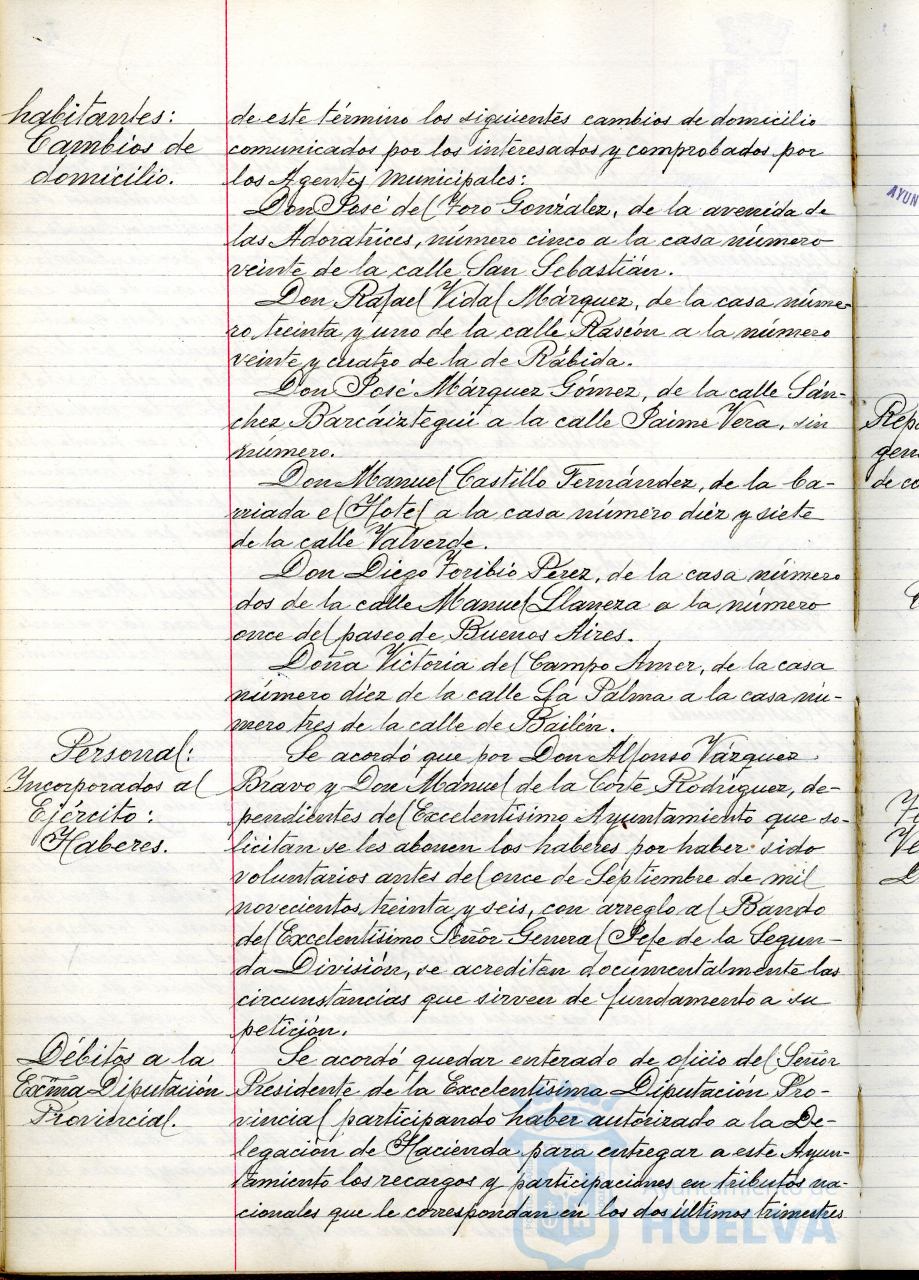 habitantes:
Cambios de
domicilio.
de este término los siguientes cambios de domicilio
comunicados por los interesados y comprobados por
los Agentes municipales:
Don José del Toro González, de la avenida de
las Adoratrices, número cinco a la casa número
veinte de la calle San Sebastián.
Don Rafael Vidal Márquez, de la casa núme-
ro treinta y uno de la calle Rascón a la número
veinte y cuatro de la de Rábida.
Don José Márquez Gómez, de la calle Sán-
chez Barcáiztegui a la calle Jaime Vera, sin
número.
Don Manuel Castillo Fernández, de la ba-
rriada el Hotel a la casa número diez y siete
de la calle Valverde.
Don Diego Toribio Pérez, de la casa número
dos de la calle Manuel Llaneza a la número
once del paseo de Buenos Aires.
Doña Victoria del Campo Amer, de la casa
número diez de la calle La Palma a la casa nú-
mero tres de la calle de Bailén.
Personal:
Incorporados al
Ejército:
Haberes.
Se acordó que por Don Alfonso Vázquez
Bravo y Don Manuel de la Corte Rodríguez, de-
pendientes del Excelentísimo Ayuntamiento que so-
licitan se les abonen los haberes por haber sido
voluntarios antes del once de Septiembre de mil
novecientos treinta y seis, con arreglo al Bando
del Excelentísimo Señor General Jefe de la Segun-
da División, se acrediten documentalmente las
circunstancias que sirven de fundamento a su
petición.
Débitos a la
Excma Diputación
Provincial.
Se acordó quedar enterado de oficio del Señor
Presidente de la Excelentísima Diputación Pro-
vincial participando haber autorizado a la De-
legación de Hacienda para entregar a este Ayun-
tamiento los recargos y participaciones en tributos na-
cionales que le correspondan en los dos últimos trimestres
Ayuntamiento de
HUELVA
AYUN
Repa
gen
de co
Ve